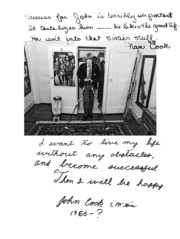 Success for John is terribly important
It could injure him — he likes the good life.
You will into that Sixties stuff.
Nan Cook
I want to love my life
without any obstacles,
and become successful
Then I will be happy.
John Cook
1966-?